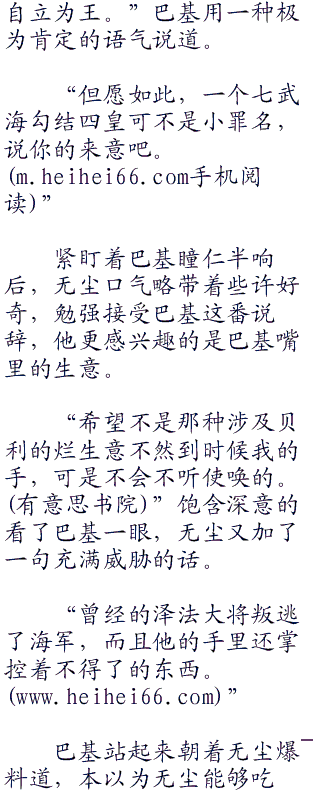 自立为王。”巴基用一种极
为肯定的语气说道。
“但愿如此，一个七武
海勾结四皇可不是小罪名，
说你的来意吧。
(m.heihei66.com手机阅
读)”
紧盯着巴基瞳仁半响
后，无尘口气略带着些许好
奇，勉强接受巴基这番说
辞，他更感兴趣的是巴基嘴
里的生意。
“希望不是那种涉及贝
利的烂生意不然到时候我的
手，可是不会不听使唤的。
(有意思书院)”饱含深意的
看了巴基一眼，无尘又加了
一句充满威胁的话。
“曾经的泽法大将叛逃
了海军，而且他的手里还掌
控着不得了的东西。
(www.heihei66.com)”
巴基站起来朝着无尘爆
料道，本以为无尘能够吃